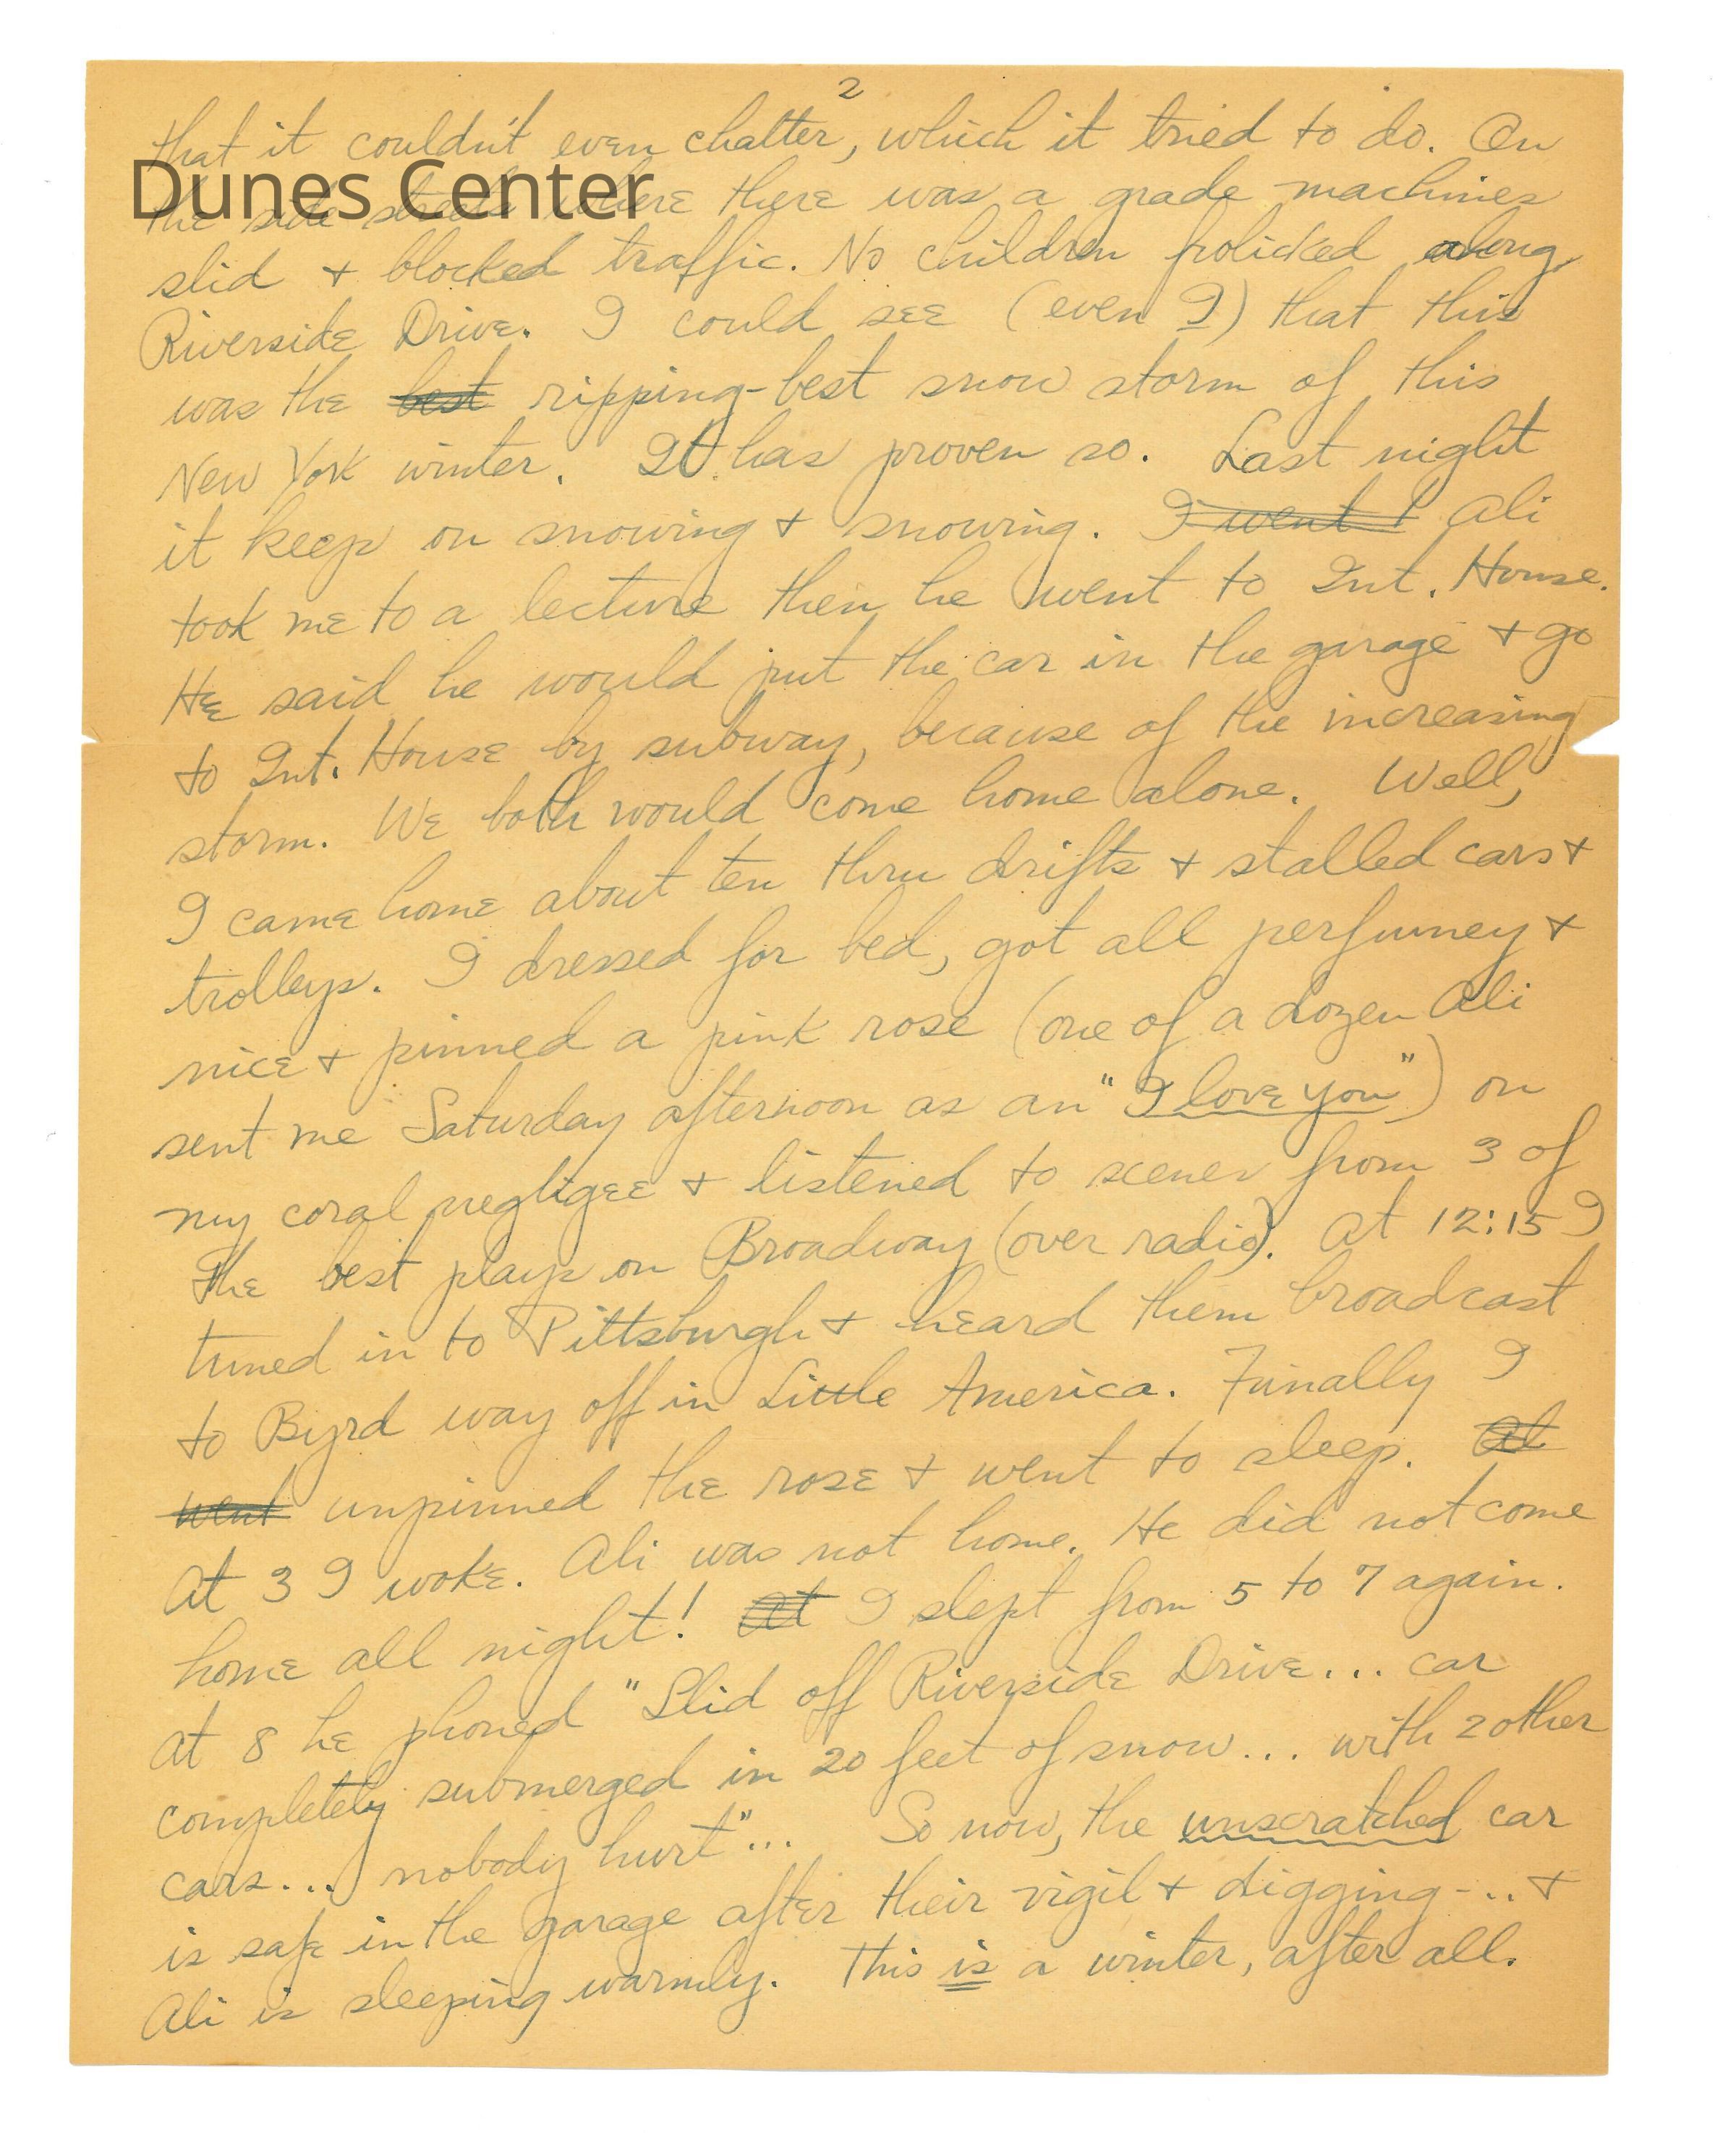 2
that it couldn't even chatter, which it tried to do. On
Dunes Center
the side streets where there was a grade machines
slid + blocked traffic. No children frolicked along
Riverside Drive. I could see (even I) that this
was the best ripping-best snow storm of this
New York winter. It has proven so. Last night
it keep on snowing + snowing. I went Ali
took me to a lecture then he went to Int. House.
He said he would put the car in the garage + go
to Int. House by subway, because of the increasing
storm. We both would come home alone. Well,
I came home about ten thru drifts + stalled cars +
trolleys. I dressed for bed, got all perfumey +
nice + pinned a pink rose (one of a dozen Ali
sent me Saturday afternoon as an "I love you") on
my coral negligee + listened to scenes from 3 of
the best plays on Broadway (over radio). At 12:15 I
tuned in to Pittsburgh + heard them broadcast
to Byrd way off in Little America. Finally I
went unpinned the rose + went to sleep. At
At 3 I woke. Ali was not home. He did not come
home all night! At I slept from 5 to 7 again.
At 8 he phoned "Slid off Riverside Drive... car
completely submerged in 20 feet of snow... with 2 other
cars... nobody hurt"... So now, the unscratched car
is safe in the garage after their vigil + digging-... +
Ali is sleeping warmly. This is a winter, after all.